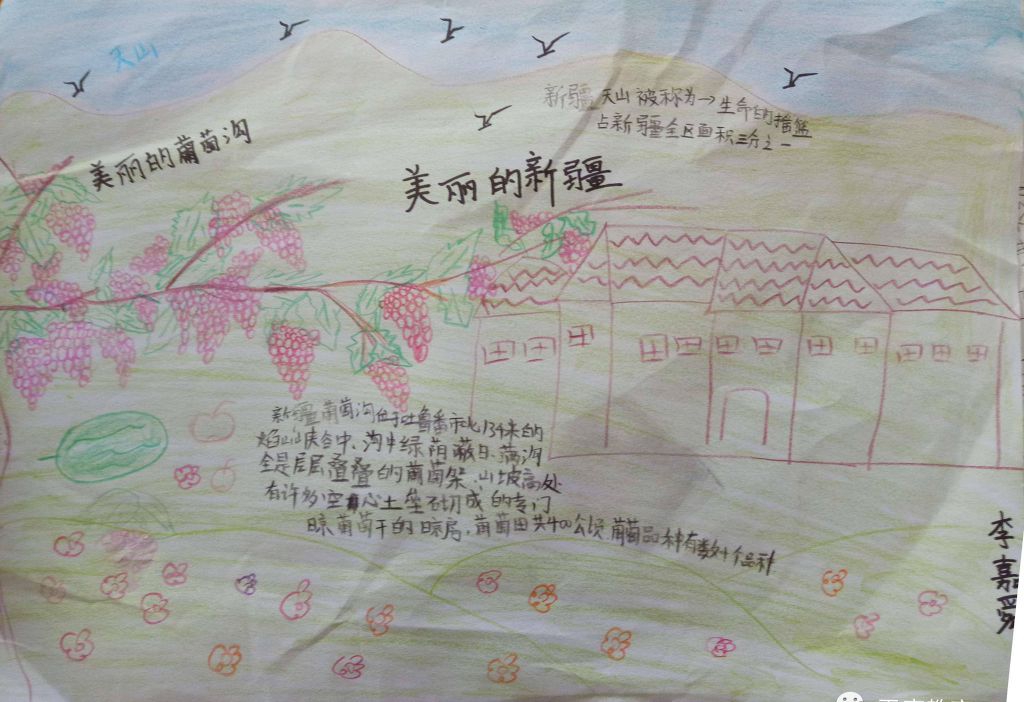 天山
新疆天山被称为→生命的摇篮
占新疆全区面积三分之一
美丽的葡萄沟
美丽的新疆
新疆葡萄沟位于吐鲁番市北134米的
焰山山庆谷中、沟中绿荫蔽日、满沟
全是层层叠叠的葡萄架、山坡高处
有许多空心土垒石切成的专门
晾葡萄干的晾房,葡萄田共400公顷.葡萄品种有数十个品种
李嘉